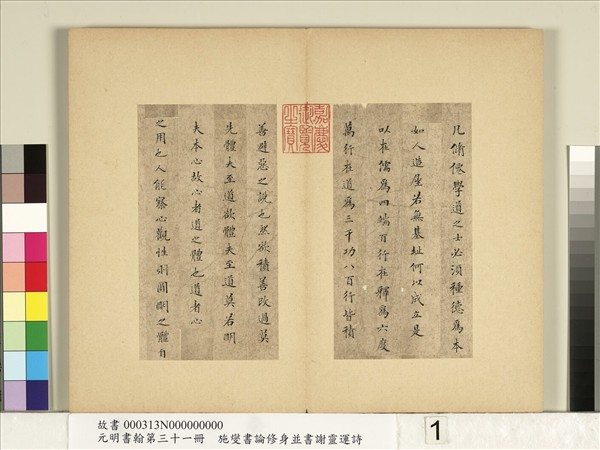 凡脩僊學道之士必須種德為本
如人造屋若無基址何以成立是
以在儒為四端百行在釋為六度
萬行在道為三千功八百行皆積
善避惡之說也然欲積善改過莫
先體夫至道欲體夫至道莫若明
夫本心故心者道之體也道者心
之用也人能察心觀性則圓明之體自
嘉慶御覽之寶
故書 000313N000000000
元明書翰第三十一冊 施燮書論修身並書謝靈運詩
1